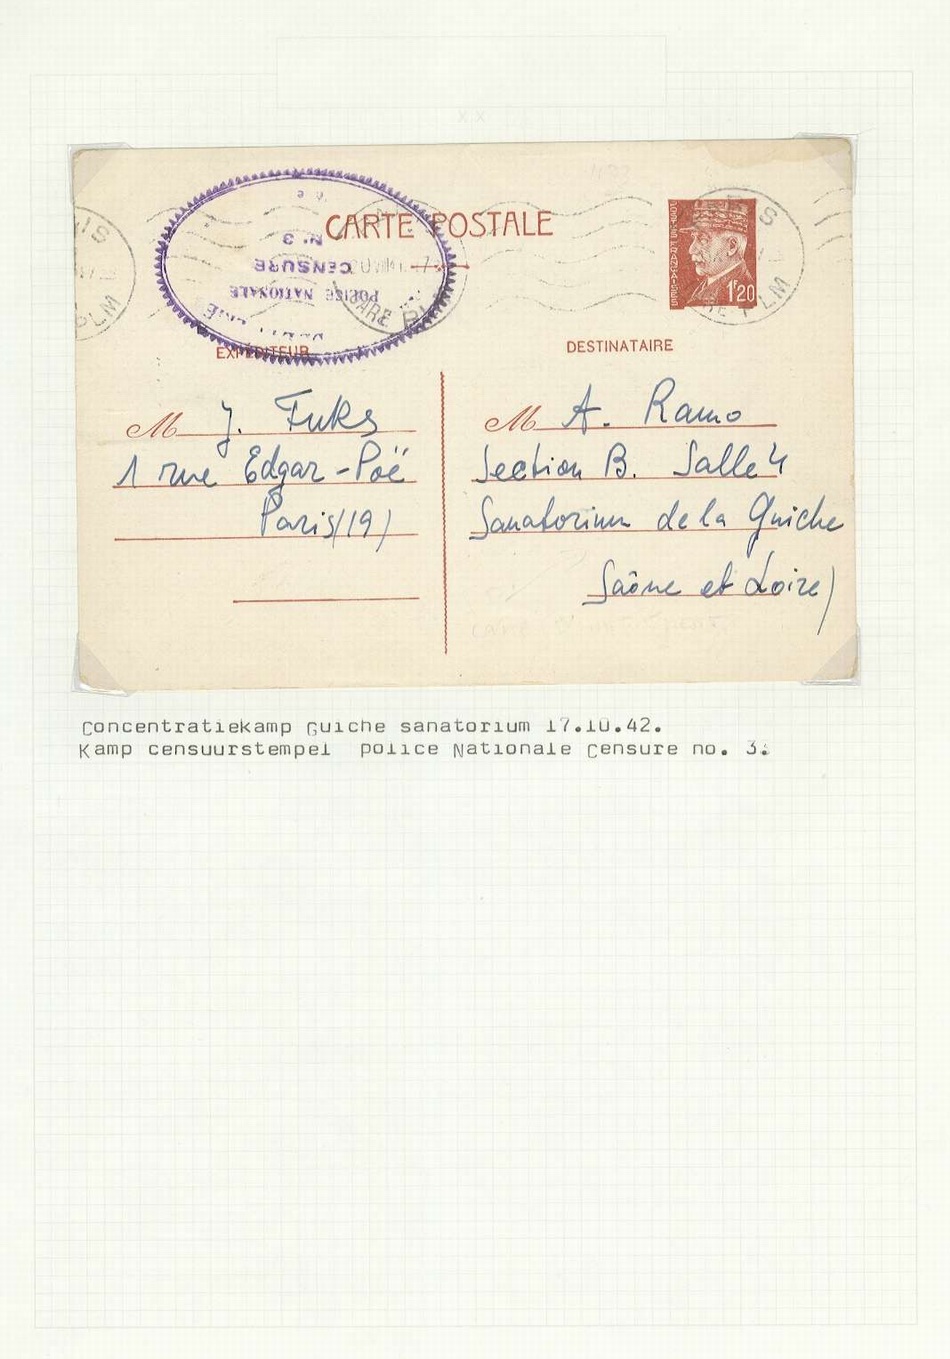 CARTE POSTALE
Nº 3
CENSURE
POLICE NATIONALE
GARE PLM
POSTES FRANÇAISES
1F20
EXPÉDITEUR
DESTINATAIRE
M J. Fuks
1 rue Edgar-Poë
Paris (19)
M A. Ramo
Section B. Salle 4
Sanatorium de la Guiche
Saône et Loire)
Concentratiekamp Guiche sanatorium 17.10.42.
Kamp censuurstempel police Nationale Censure no. 3.